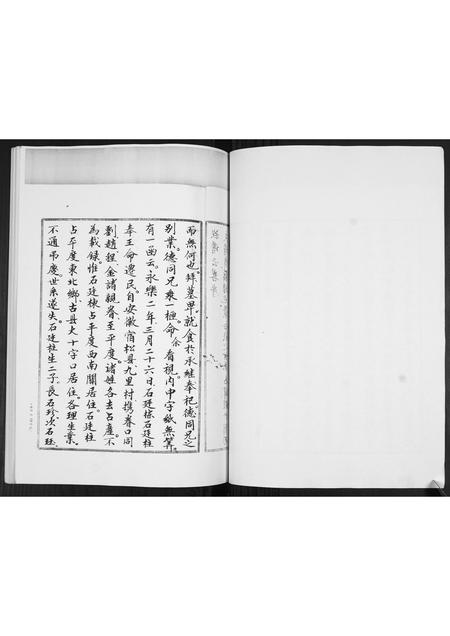 而無何也。拜墓畢就食於承继奉祀。德同兄之
别業。德同兄柬一極命余看視。内中字紙無筭。
有一函云。永樂二年三月二十六日。石廷棟石廷柱
奉王命遷民。自安徽宿松县九里村携眷口同
劉趙程金諸親眷至平度。諸姓各去占產。不
為載録。惟石廷棟占平度西南關居住。石廷柱
占平度東北鄉。古县大十字口居住。各理生業。
不通弔慶。世系遂失。石廷柱生二子。長石珍次石珏